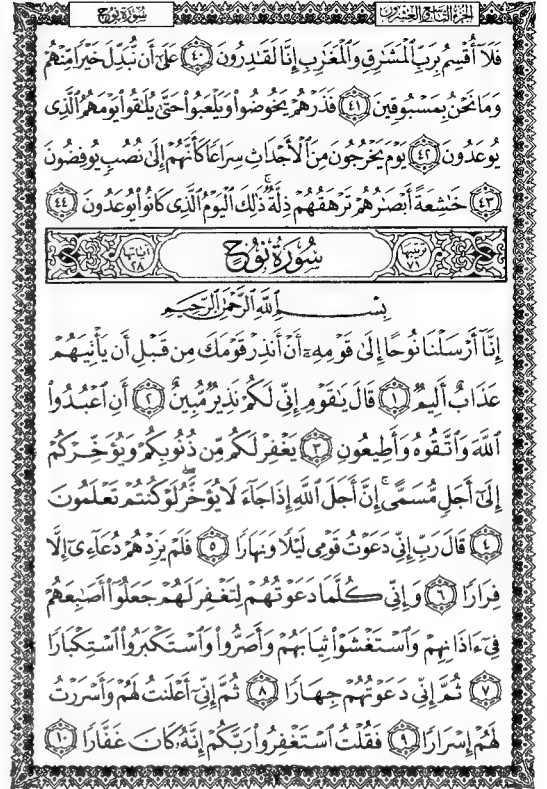 سُورَةُ نُوح الجزء التاسع والعشرون
فَلَآ أُقْسِمُ بِرَبِّ ٱلْمَشَٰرِقِ وَٱلْمَغَٰرِبِ إِنَّا لَقَٰدِرُونَ ٤٠ عَلَىٰٓ أَن نُّبَدِّلَ خَيْرًا مِّنْهُمْ
وَمَا نَحْنُ بِمَسْبُوقِينَ ٤١ فَذَرْهُمْ يَخُوضُوا۟ وَيَلْعَبُوا۟ حَتَّىٰ يُلَٰقُوا۟ يَوْمَهُمُ ٱلَّذِى
يُوعَدُونَ ٤٢ يَوْمَ يَخْرُجُونَ مِنَ ٱلْأَجْدَاثِ سِرَاعًا كَأَنَّهُمْ إِلَىٰ نُصُبٍ يُوفِضُونَ
٤٣ خَٰشِعَةً أَبْصَٰرُهُمْ تَرْهَقُهُمْ ذِلَّةٌ ۚ ذَٰلِكَ ٱلْيَوْمُ ٱلَّذِى كَانُوا۟ يُوعَدُونَ ٤٤
ترتيبها ٧١ سُورَةُ نُوحٍ آياتها ٢٨
بِسْمِ ٱللَّهِ ٱلرَّحْمَٰنِ ٱلرَّحِيمِ
إِنَّآ أَرْسَلْنَا نُوحًا إِلَىٰ قَوْمِهِۦٓ أَنْ أَنذِرْ قَوْمَكَ مِن قَبْلِ أَن يَأْتِيَهُمْ
عَذَابٌ أَلِيمٌ ١ قَالَ يَٰقَوْمِ إِنِّى لَكُمْ نَذِيرٌ مُّبِينٌ ٢ أَنِ ٱعْبُدُوا۟
ٱللَّهَ وَٱتَّقُوهُ وَأَطِيعُونِ ٣ يَغْفِرْ لَكُم مِّن ذُنُوبِكُمْ وَيُؤَخِّرْكُمْ
إِلَىٰٓ أَجَلٍ مُّسَمًّى ۚ إِنَّ أَجَلَ ٱللَّهِ إِذَا جَآءَ لَا يُؤَخَّرُ ۖ لَوْ كُنتُمْ تَعْلَمُونَ
٤ قَالَ رَبِّ إِنِّى دَعَوْتُ قَوْمِى لَيْلًا وَنَهَارًا ٥ فَلَمْ يَزِدْهُمْ دُعَآءِىٓ إِلَّا
فِرَارًا ٦ وَإِنِّى كُلَّمَا دَعَوْتُهُمْ لِتَغْفِرَ لَهُمْ جَعَلُوٓا۟ أَصَٰبِعَهُمْ
فِىٓ ءَاذَانِهِمْ وَٱسْتَغْشَوْا۟ ثِيَابَهُمْ وَأَصَرُّوا۟ وَٱسْتَكْبَرُوا۟ ٱسْتِكْبَارًا
٧ ثُمَّ إِنِّى دَعَوْتُهُمْ جِهَارًا ٨ ثُمَّ إِنِّىٓ أَعْلَنتُ لَهُمْ وَأَسْرَرْتُ
لَهُمْ إِسْرَارًا ٩ فَقُلْتُ ٱسْتَغْفِرُوا۟ رَبَّكُمْ إِنَّهُۥ كَانَ غَفَّارًا ١٠